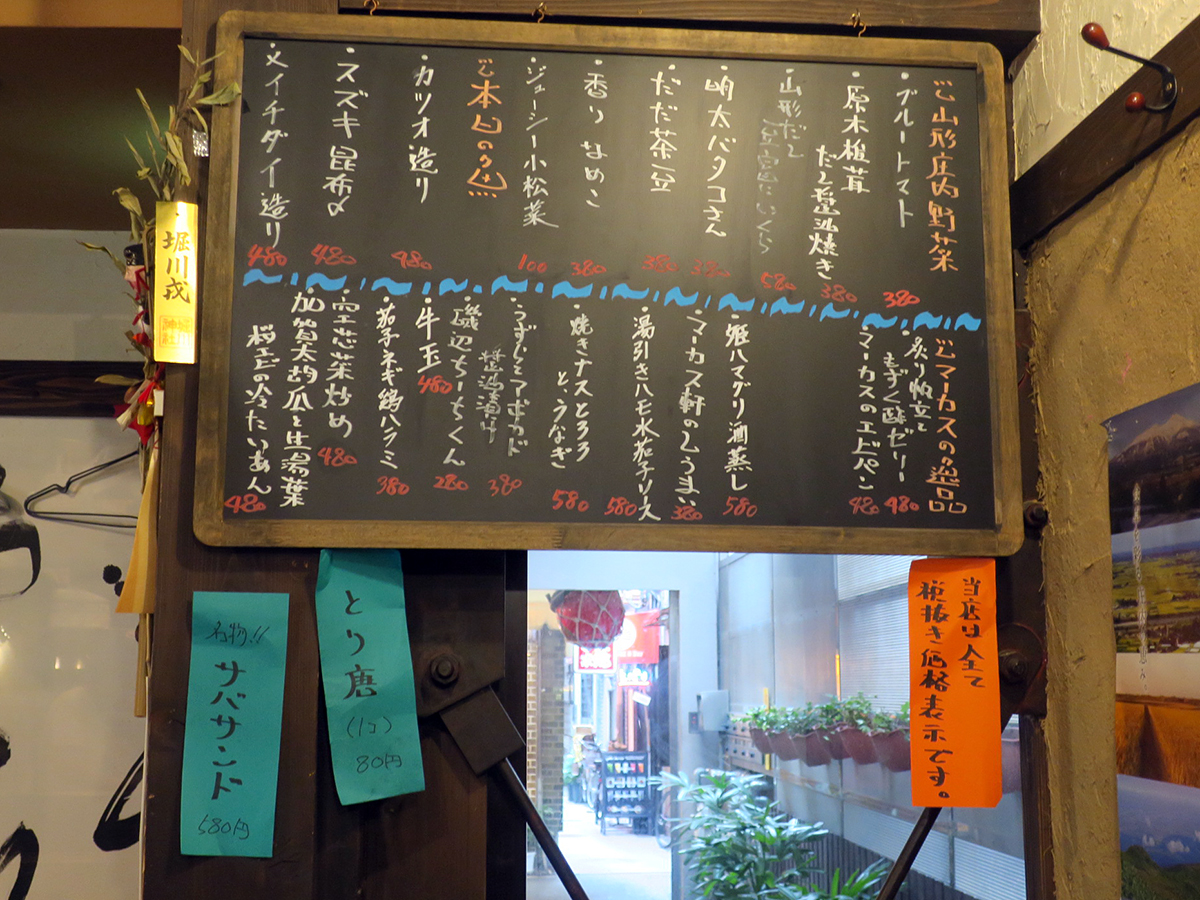 〆山形庄内野菜
・フルートマト
380
・原木椎茸
だし醤油焼き
380
・山形だし
580
・明太バタコさん
380
・だだ茶豆
380
・香りなめこ
380
・ジューシー小松菜
100
〆本日の魚
・カツオ造り
980
・スズキ昆布〆
480
・メイチダイ造り
480
〆マーカスの逸品
・炙り帆立と
もずく酢ゼリー
480
・マーカスのエビパン
480
・雅ハマグリ酒蒸し
580
・マーカス軒のしうまい
380
・湯引きハモ水茄子リース
580
・焼きナスとろろ
とうなぎ
580
・うずらとアボカド
醤油漬け
380
・磯辺ちーちくん
280
・牛玉
480
・茄子ネギ鶏ハラミ
380
・空芯菜炒め
480
・加賀太胡瓜と生湯葉
桜エビの冷たいあん
480
堀川戎
名物!!
サバサンド
580円
とり唐
(1コ)
80円
当店は全て
税抜き価格表示です。